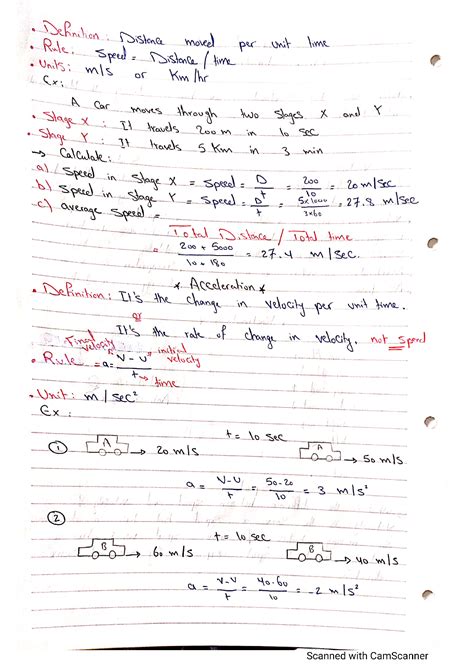 • Definition: Distance moved per unit time
• Rule: Speed = Distance / time
• Units: m/s or Km/hr
Ex:
A car moves through two stages X and Y
• Stage X: It travels 200 m in 10 sec
• Stage Y: It travels 5 Km in 3 min
→ Calculate:
a) Speed in Stage X = Speed = D/t = 200/10 = 20 m/sec
b) Speed in Stage Y = Speed = D/t = 5x1000/3x60 = 27.8 m/sec
c) average Speed =
Total Distace / Total time
= 200 + 5000 / 10 + 180 = 27.4 m/sec
* Acceleration *
• Definition: It's the change in velocity per unit time.
or
It's the rate of change in velocity. not speed
• Rule = a = V - U / t
Final velocity
initial velocity
→ time
• Unit: m / sec²
Ex:
① A → 20 m/s t = 10 sec A → 50 m/s
a = V-U/t = 50-20/10 = 3 m/s²
②
B → 60 m/s t = 10 sec B → 40 m/s
a = V-U/t = 40-60/10 = -2 m/s²
Scanned with CamScanner